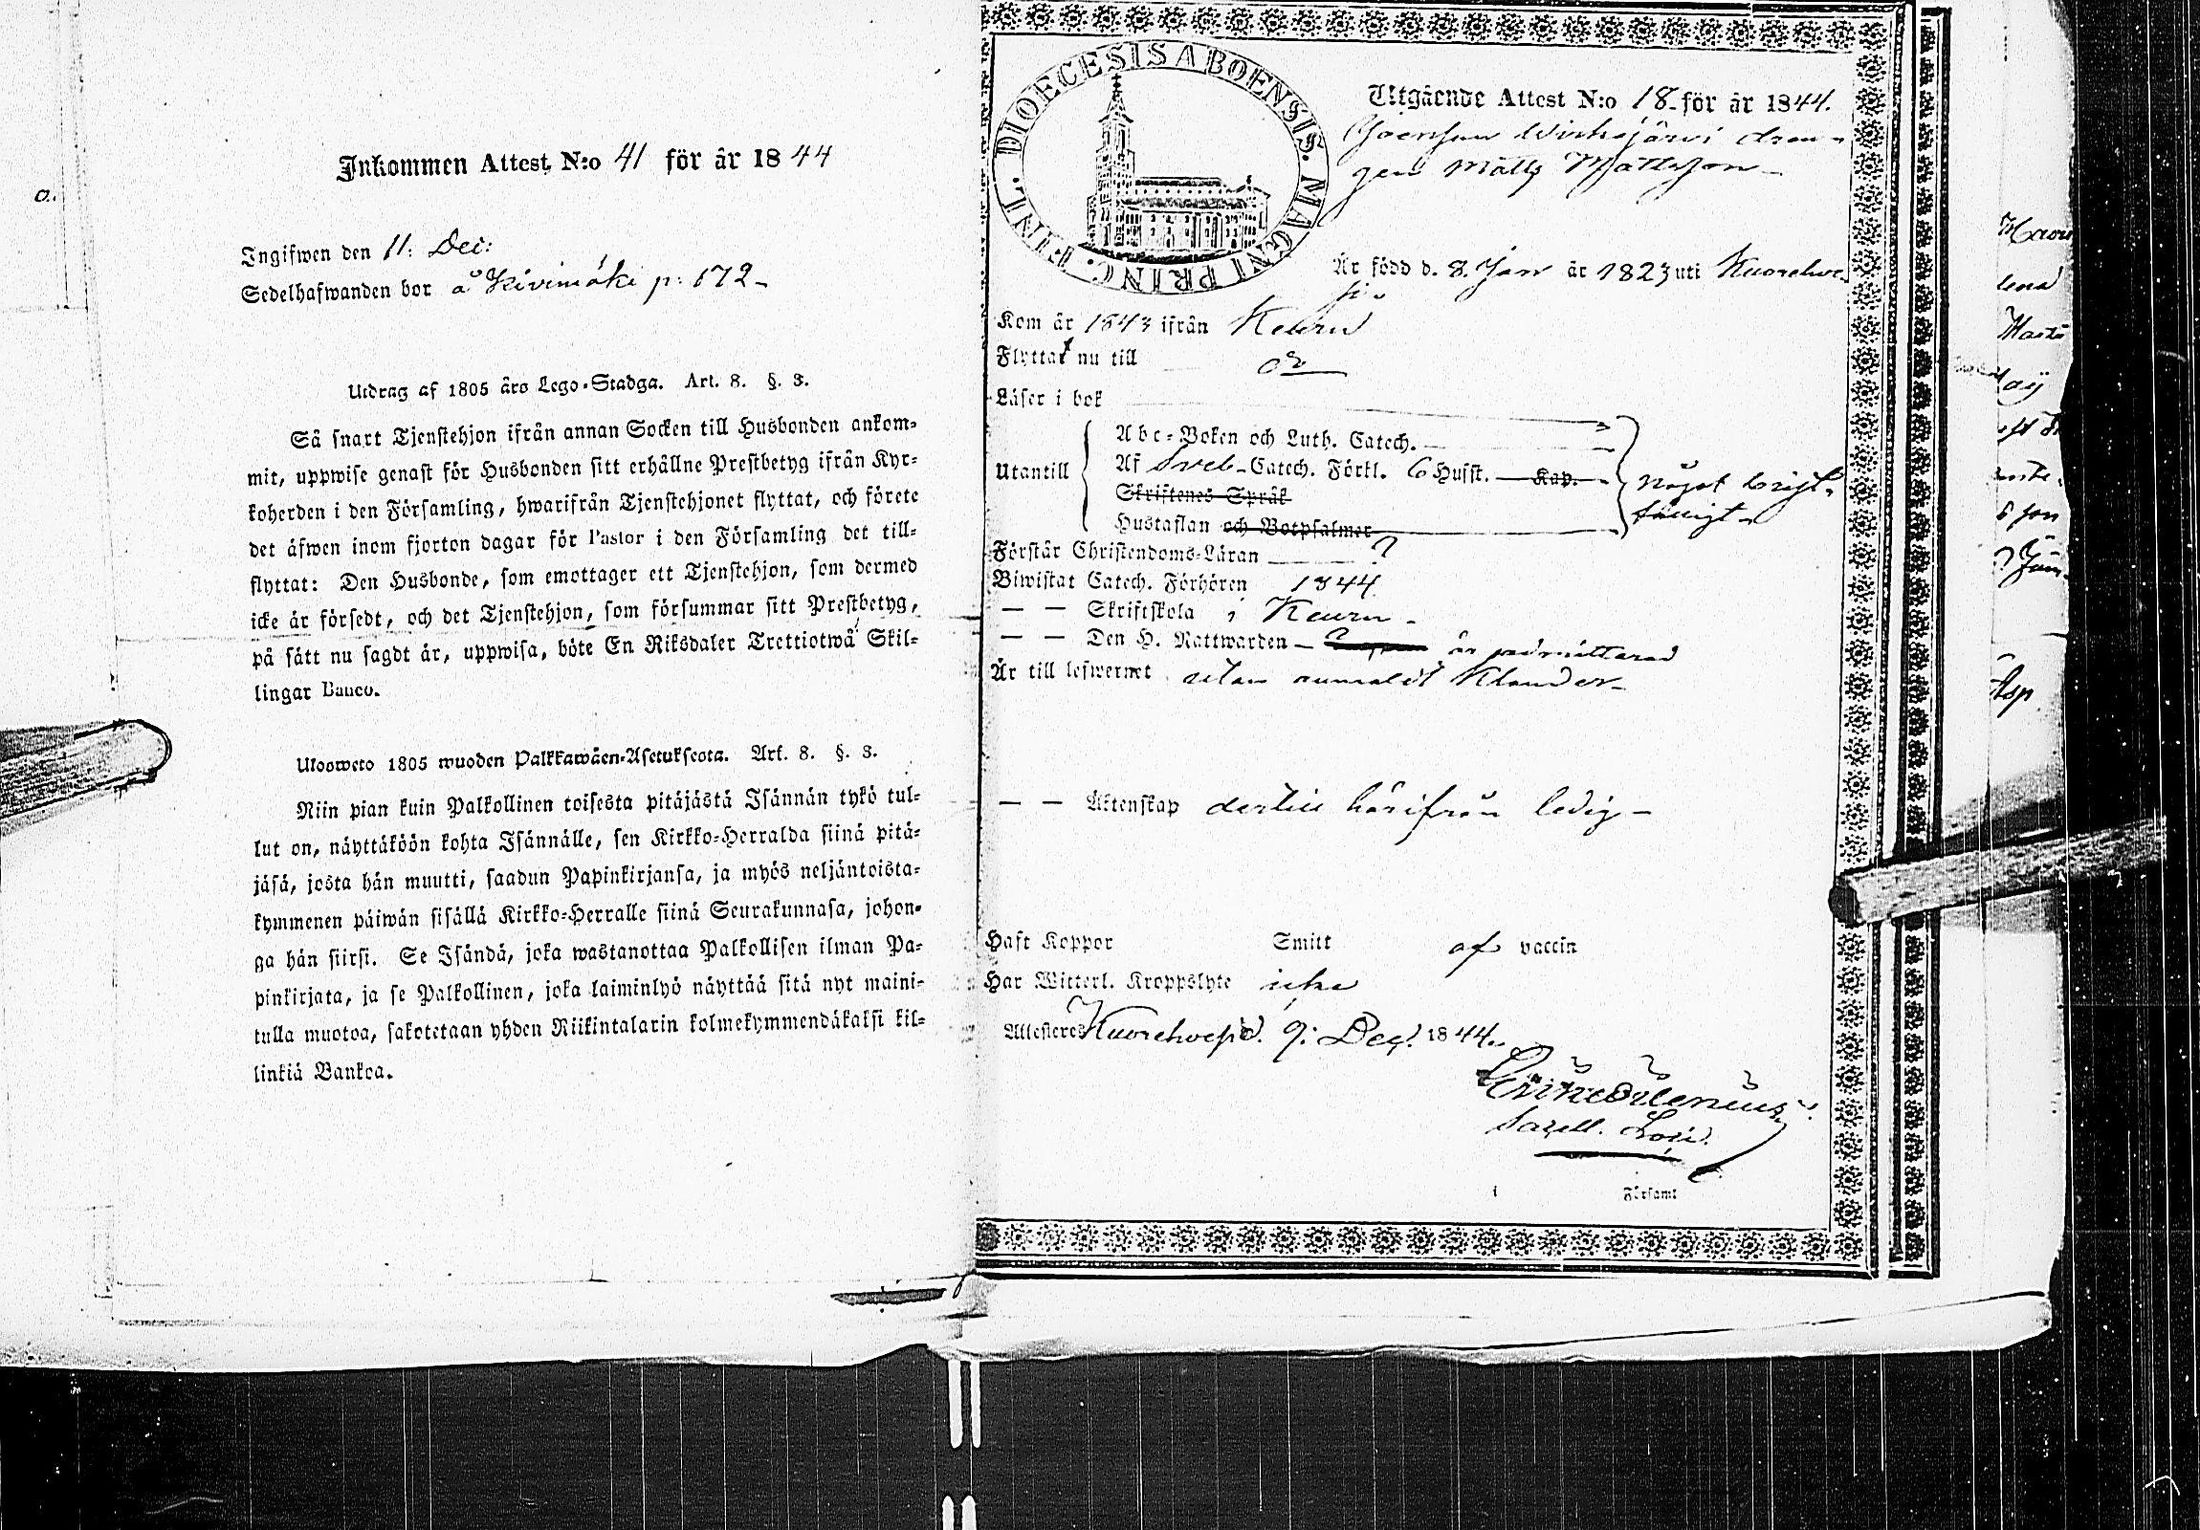 Inkommen Attest N:o 41 för år 1844
Ingifwen den 11: Dec:
Sedelhafwanden bor å Kivimäki p: 172
Utdrag af 1805 års Lego-Stadga. Art. 8. §. 3.
Så snart Tjenstehjon ifrån annan Socken till Husbonden ankom-
mit, uppwise genast för Husbonden sitt erhållne Prestbetyg ifrån Kyr-
koherden i den Församling, hwarifrån Tjenstehjonet flyttat, och förete
det äfwen inom fjorton dagar för Pastor i den Församling det till-
flyttat: Den Husbonde, som emottager ett Tjenstehjon, som dermed
icke är försedt, och det Tjenstehjon, som försummar sitt Prestbetyg,
på sätt nu sagdt är, uppwisa, böte En Riksdaler Trettiotwå Skil-
lingar Banco.
Ulosweto 1805 wuoden Palkkawäen-Asetuksesta. Art. 8. §. 3.
Niin pian kuin Palkollinen toisesta pitäjästä Isännän tykö tul-
lut on, näyttäköön kohta Isännälle, sen Kirkko-Herralda siinä pitä-
jäsä, josta hän muutti, saadun Papinkirjansa, ja myös neljäntoista-
kymmenen päiwän sisällä Kirkko-Herralle siinä Seurakunnasa, johon-
ga hän siirsi. Se Isändä, joka wastanottaa Palkollisen ilman Pa-
pinkirjata, ja se Palkollinen, joka laiminlyö näyttää sitä nyt maini-
tulla muotoa, sakotetaan yhden Riikintalarin kolmekymmendäkaksi kil-
linkiä Bankoa.
DIOECESIS ABOENSIS. MAGNI PRINC. FINL.
Utgående Attest N:o 18 för år 1844.
Wirhejärvi dren-
gen Matts Mattsson
Är född d. 8. Jan år 1823 uti Kuorehwe-
si
Kom år 1843 ifrån Keuru
Flyttar nu till
Läser i bok
Utantill
Abc-Boken och Luth. Catech.
Af Sveb. Catech. Förkl. 6 Husst. Kap.
Skriftenes Språk
Hustaflan och Botpsalmer
något brist-
fälligt
Förstår Christendoms-Läran ?
Biwistat Catech. Förhören 1844
— — Skriftskola i Keuru
— — Den H. Nattwarden — är admitterad
Är till lefwernet utan anmäldt Klander
— — Äktenskap dertill härifrån ledig
Haft Koppor Smitt af vaccin
Har Witterl. Kroppslyte icke
Attesteres Kuorehvesi d. 9: Dec. 1844.
Församl